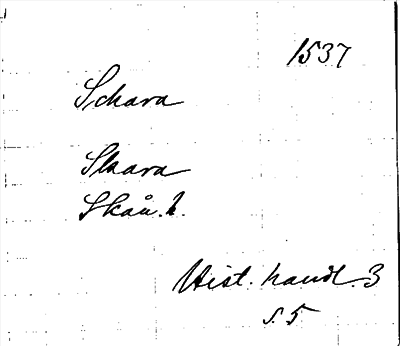 1537
Schara
Skara
Skån. h.
Hist. handl. 3
s. 5